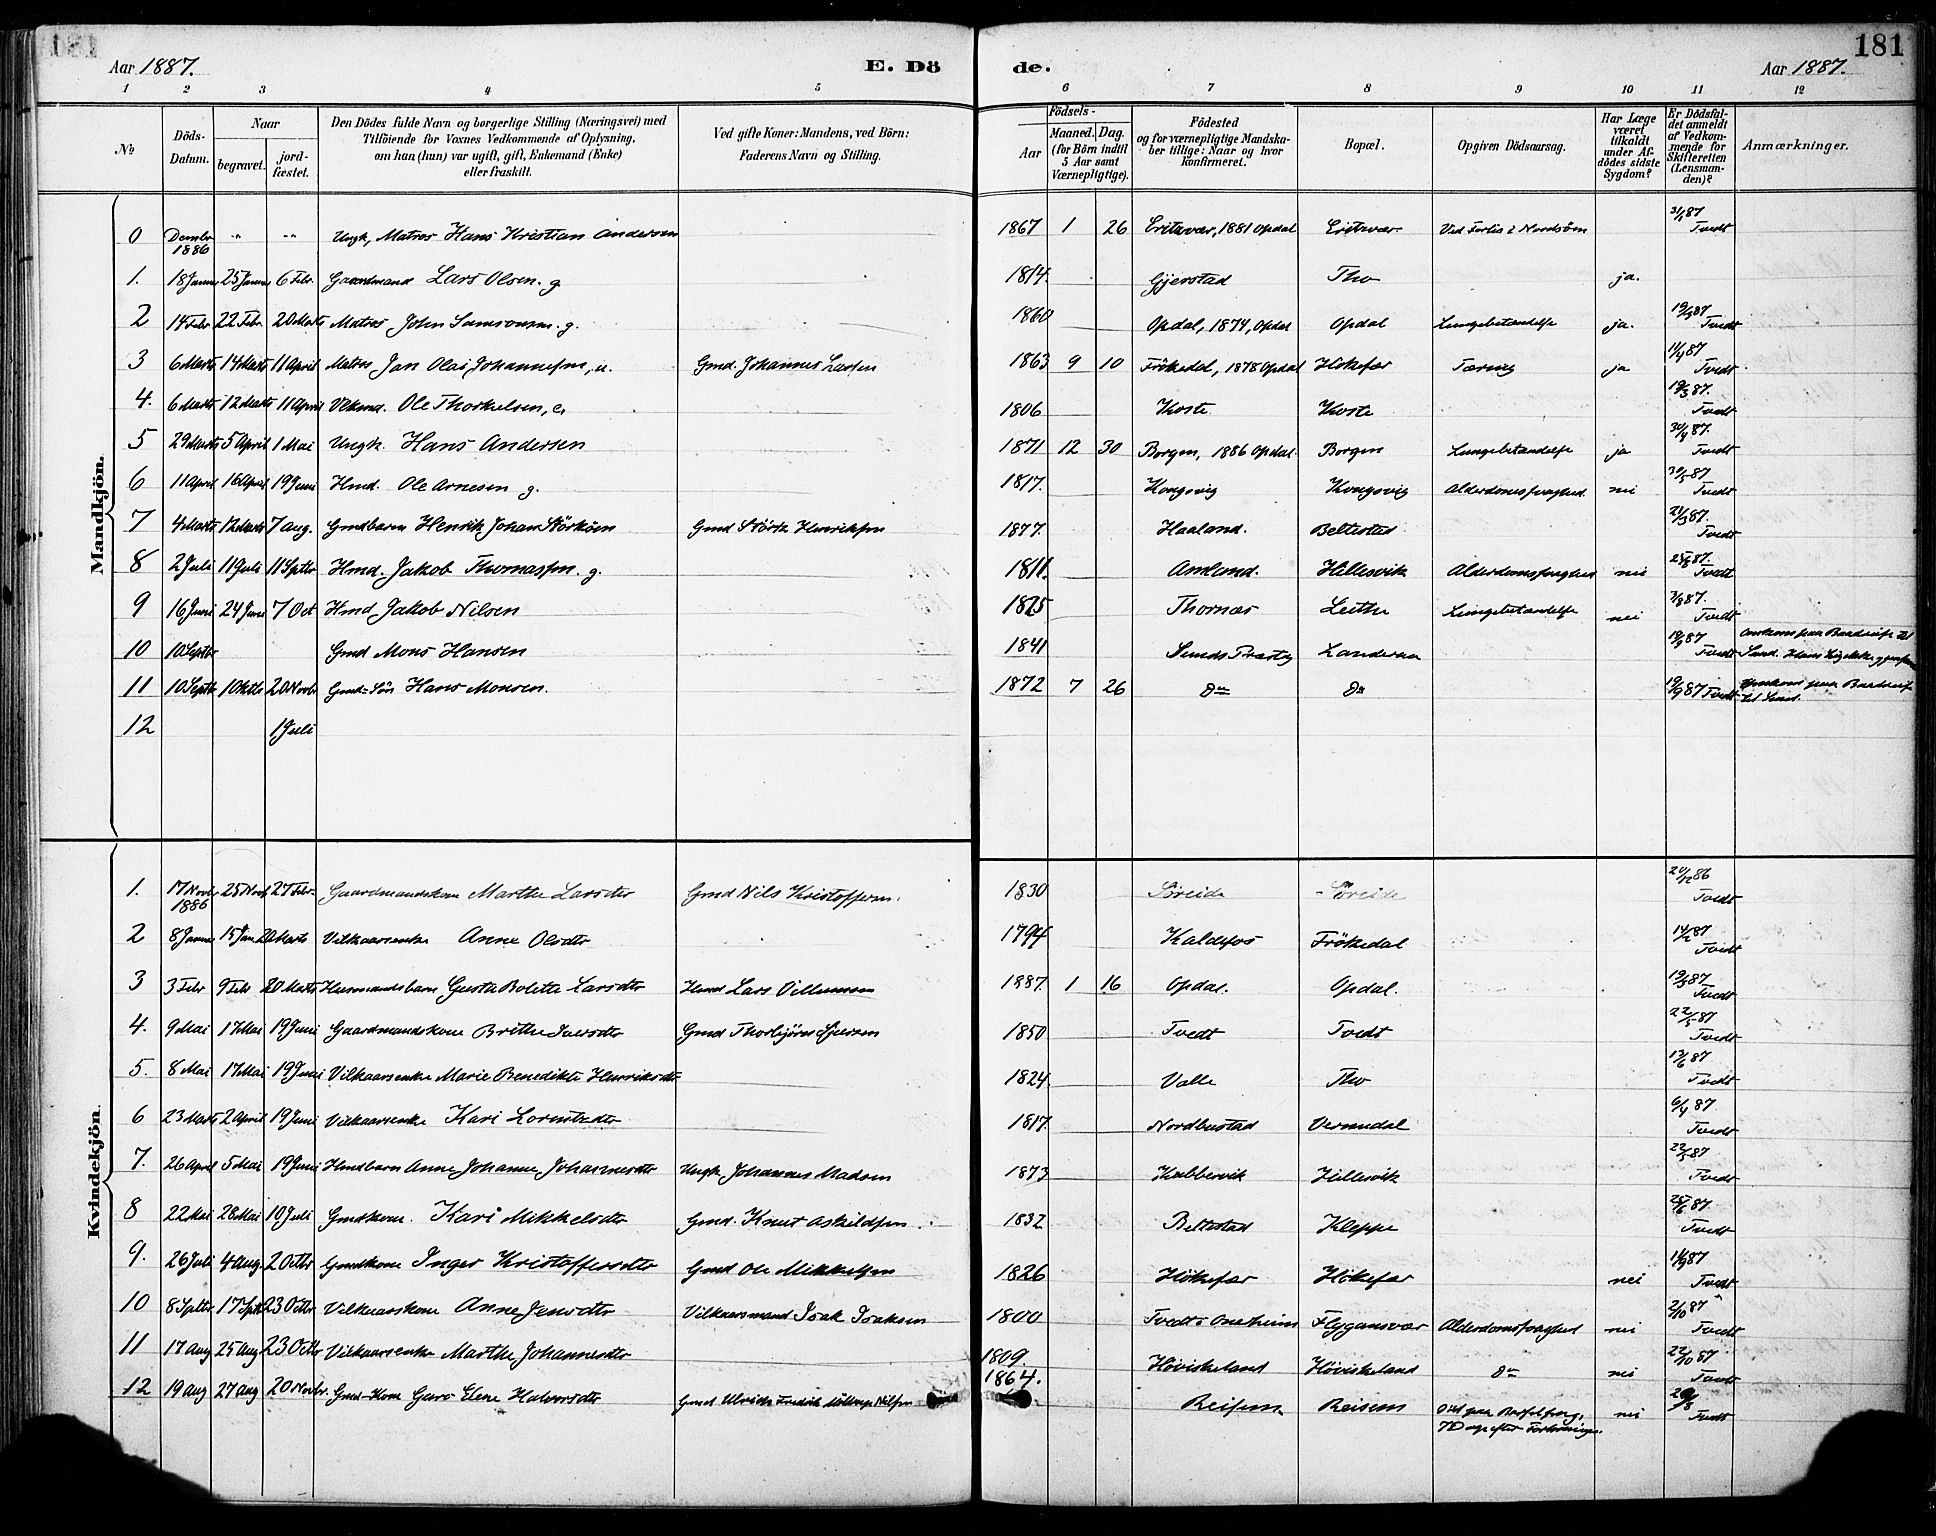 181
Aar 1887. E. Dö de. Aar 1887.
1 2 3 4 5 6 7 8 9 10 11 12
№ Döds-Datum. Naar begravet. jordfæstet. Den Dödes fulde Navn og borgerlige Stilling (Næringsvei) med Tilföiende for Voxnes Vedkommende af Oplysning, om han (hun) var ugift, gift, Enkemand (Enke) eller fraskilt. Ved gifte Koner: Mandens, ved Börn: Faderens Navn og Stilling. Födsels- Aar Maaned. Dag. (for Börn indtil 5 Aar samt Værnepligtige). Födested og for værnepligtige Mandskaber tillige: Naar og hvor konfirmeret. Bopæl. Opgiven Dödsaarsag. Har Læge været tilkaldt under Afdödes sidste Sygdom? Er Dödsfaldet anmeldt af Vedkommende for Skifteretten (Lensmanden)? Anmærkninger.
Mandkjön.
0 Decmbr 1886 " " Ungk, Matros Hans Kristian Andersen 1867 1 26 1881 Opdal Ved Forlis i Nordsöen 31/1 87 Tvedt
1. 18 Janua 25 Janua 6 Febr. Gaardmand Lars Olsen. g 1814. Gjerstad Tho ja.
2 14 Febr 22 Febr. 20 Marts Matros John Samsonsen. g. 1860 Opdal, 1874, Opdal Opdal Lungebetændelse ja. 19/3 87 Tvedt
3 6 Marts 14 Marts 11 April Matros Jan Olai Johannessen, u. Gmd. Johannes Larsen 1863 9 10 Frökedal, 1878 Opdal Hökefær Tæring ja 11/4 87 Tvedt
4. 6 Marts 12 Marts 11 April Vilkmd. Ole Thorkelsen, e. 1806 Koste Koste 19/3 87. Tvedt
5 29 Marts 5 April 1 Mai Ungk. Hans Andersen 1871 12 30 Borgen, 1886 Opdal. Borgen Lungebetændelse ja 30/4 87. Tvedt
6 11 April 16 April 19 Juni Hmd. Ole Arnesen g. 1817. Kongsvig Kongsvig Alderdomssvaghed. nei 30/5 87 Tvedt
7 4 Marts 12 Marts 7 Aug. Gmdbarn Henrik Johan Störksen Gmd Störk Henriksen 1877. Haaland. Beltestad 21/3 87. Tvedt
8 2 Juli 11 Juli 11 Septbr Hmd. Jakob Thomassen. g. 1811. Amland. Hillesvik Alderdomssvaghed nei 87. Tvedt
9 16 Juni 24 Juni 7 Oct Hmd Jakob Nilsen 1825 Thornæs Leithe Lungebetændelse nei 87. Tvedt
10 10 Septbr Gmd Mons Hansen 1841 Sunds Præstg 19/9 87 Tvedt Omkom paa Baadreise til Sund. Hans Lig ikke gjenf
11 10 Septb 1 Oktb 20 Novbr Gmd-Sön Hans Monsen. 1872 7 26 do do 19/9 87 Tvedt Omkom paa Baadreise til Sund.
12 1 Juli
Kvindekjön.
1. 17 Novbr 1886 25 Novb 27 Febr. Gaardmandskone Marthe Larsdtr Gmd Nils Kristoffersen. 1830 Söreide Söreide 20/12 86 Tvedt
2 8 Janua 15 Jan 20 Marts Vilkaarsenke Anne Olsdtr 1794 Kaldefos Frökedal 14/2 87 Tvedt
3 3 Febr 9 Febr 20 Marts Husmandsbarn Gusta Bolette Larsdtr Hmd Lars Villumsen 1887. 1 16 Opdal. Opdal. 19/3 87. Tvedt
4. 9 Mai 17 Mai 19 Juni Gaardmandskone Brithe Iversdtr Gmd Thorbjörn Sjursen 1850 Tvedt Tvedt 22/5 87 Tvedt
5. 8 Mai 17 Mai 19 Juni Vilkaarsenke Marie Benedikte Henriksdtr 1824. Valle Tho 13/6 87 Tvedt
6 23 Marts 2 April 19 Juni Vilkaarsenke Kari Lorentzdtr 1817. Nordbustad Vernedal 6/4 87 Tvedt
7. 26 April 5 Mai 19 Juni Hmdbarn Anne Johanne Johannesdtr Ungk Johannes Madsen 1873 Kubbervik Hillesvik 22/5 87 Tvedt
8 22 Mai 28 Mai 10 Juli Gmdkone. Kari Mikkelsdtr Gmd. Knut Askildsen. 1832 Beltestad Kleppe 87. Tvedt
9. 26 Juli 4 Aug. 2 Octbr Gmdkone Inger Kristoffersdtr Gmd Ole Mikkelsen 1826 Hökefær Hökefær nei 87 Tvedt
10 8 Septbr 17 Sptb 23 Octbr Vilkaarskone Anne Jensdtr Vilkaarsmand Isak Isaksen 1800 Tvedt i Onarheim Flygansvær Alderdomssvaghed nei 2/10 87 Tvedt
11 17 Aug 25 Aug 23 Octbr Vilkaarsenke Marthe Johannesdtr 1809. Höviskeland Höviskeland do nei 22/10 87 Tvedt
12 19 Aug 27 Aug 20 Novbr. Gmd-Kone Guro Elene Halvorsdtr Gmd Ulrich Fredrik Nilsen 1864. Reisem Reisem Död paa Barselseng, 7 Dage efter nei Tvedt